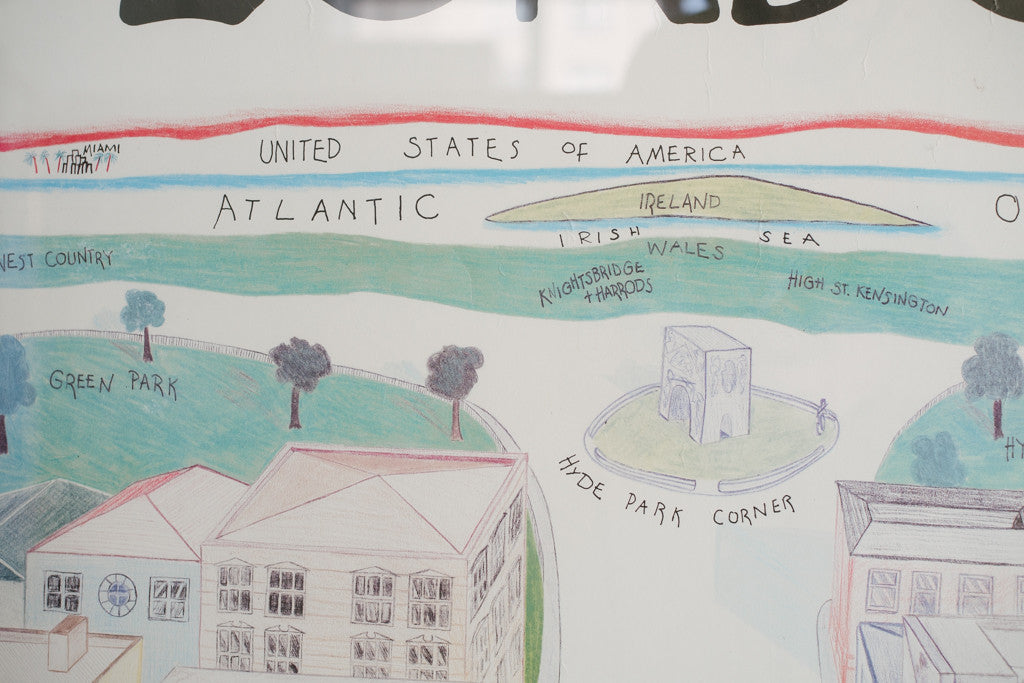 MIAMI
UNITED STATES OF AMERICA
ATLANTIC
IRELAND
IRISH SEA
WALES
WEST COUNTRY
KNIGHTSBRIDGE
+ HARRODS
HIGH ST. KENSINGTON
GREEN PARK
HYDE PARK CORNER